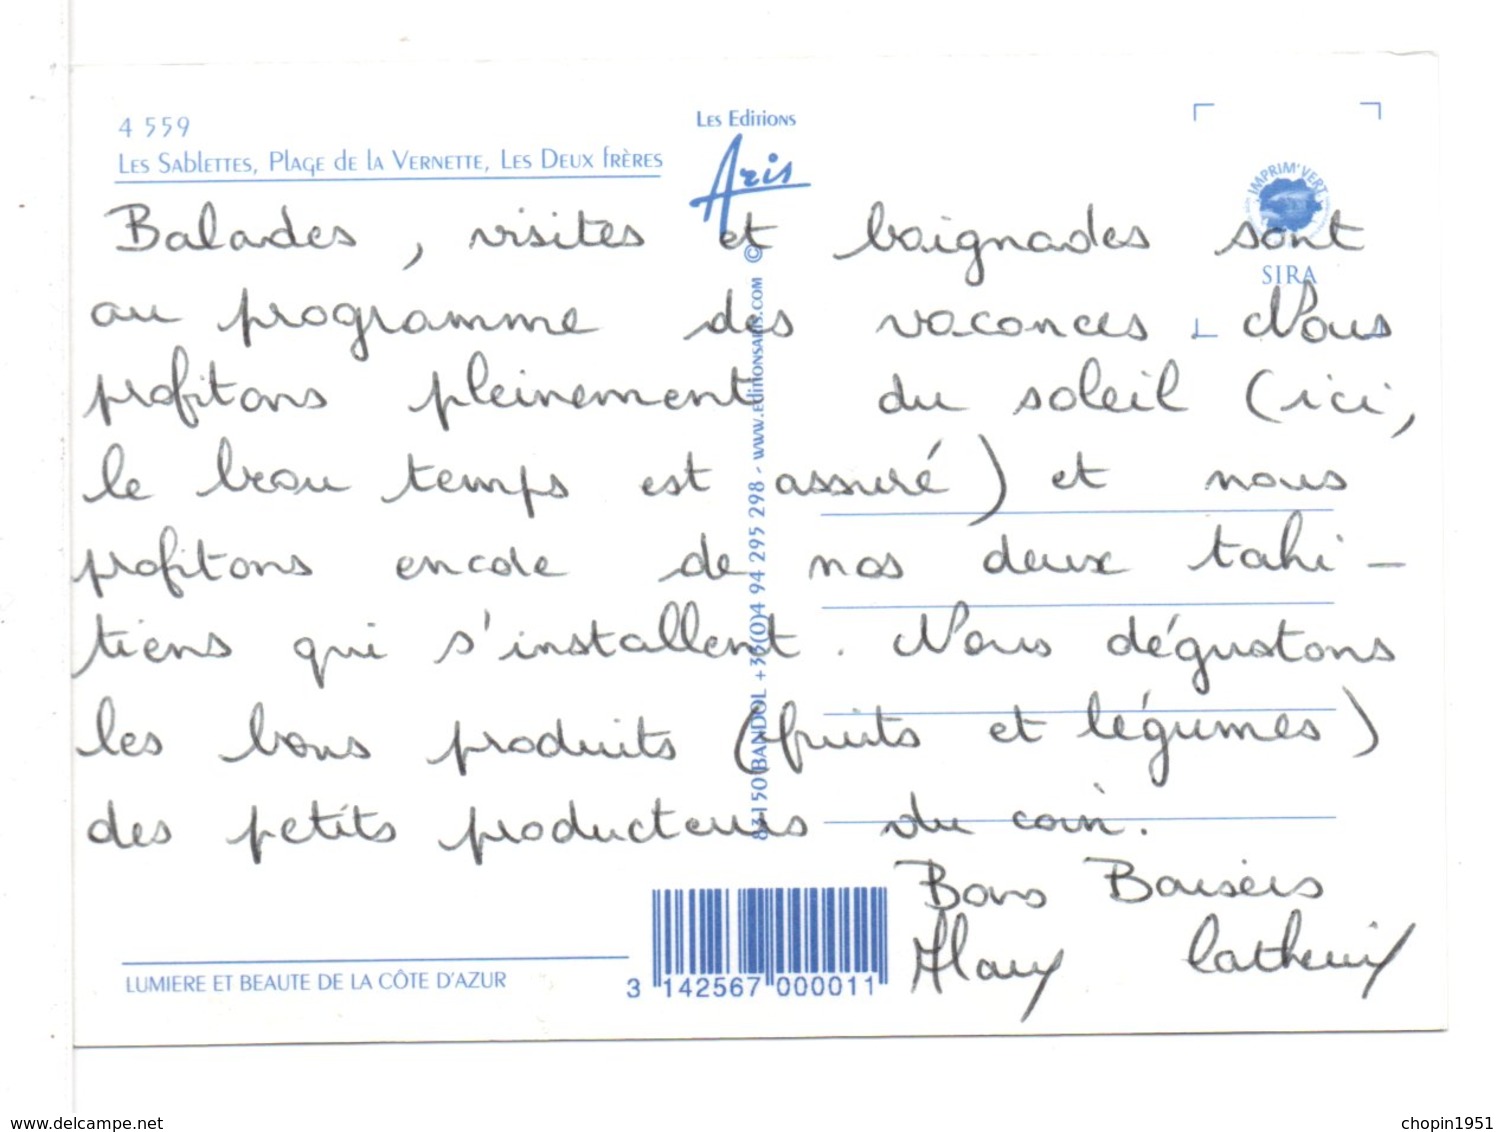 4 559
Les Sablettes, Plage de la Vernette, Les Deux frères
Les Editions
Aris
IMPRIM'VERT
SIRA
Balades, visites et baignades sont
au programme des vacances. Nous
profitons pleinement du soleil (ici,
le beau temps est assuré) et nous
profitons encore de nos deux tahi-
tiens qui s'installent. Nous dégustons
les bons produits (fruits et légumes)
des petits producteurs du coin.
Bons Baisers
83150 BANDOL +33(0)4 94 295 298 - www.editionsaris.com ©
LUMIERE ET BEAUTE DE LA CÔTE D'AZUR
3 142567 000011
delcampe.net
chopin1951